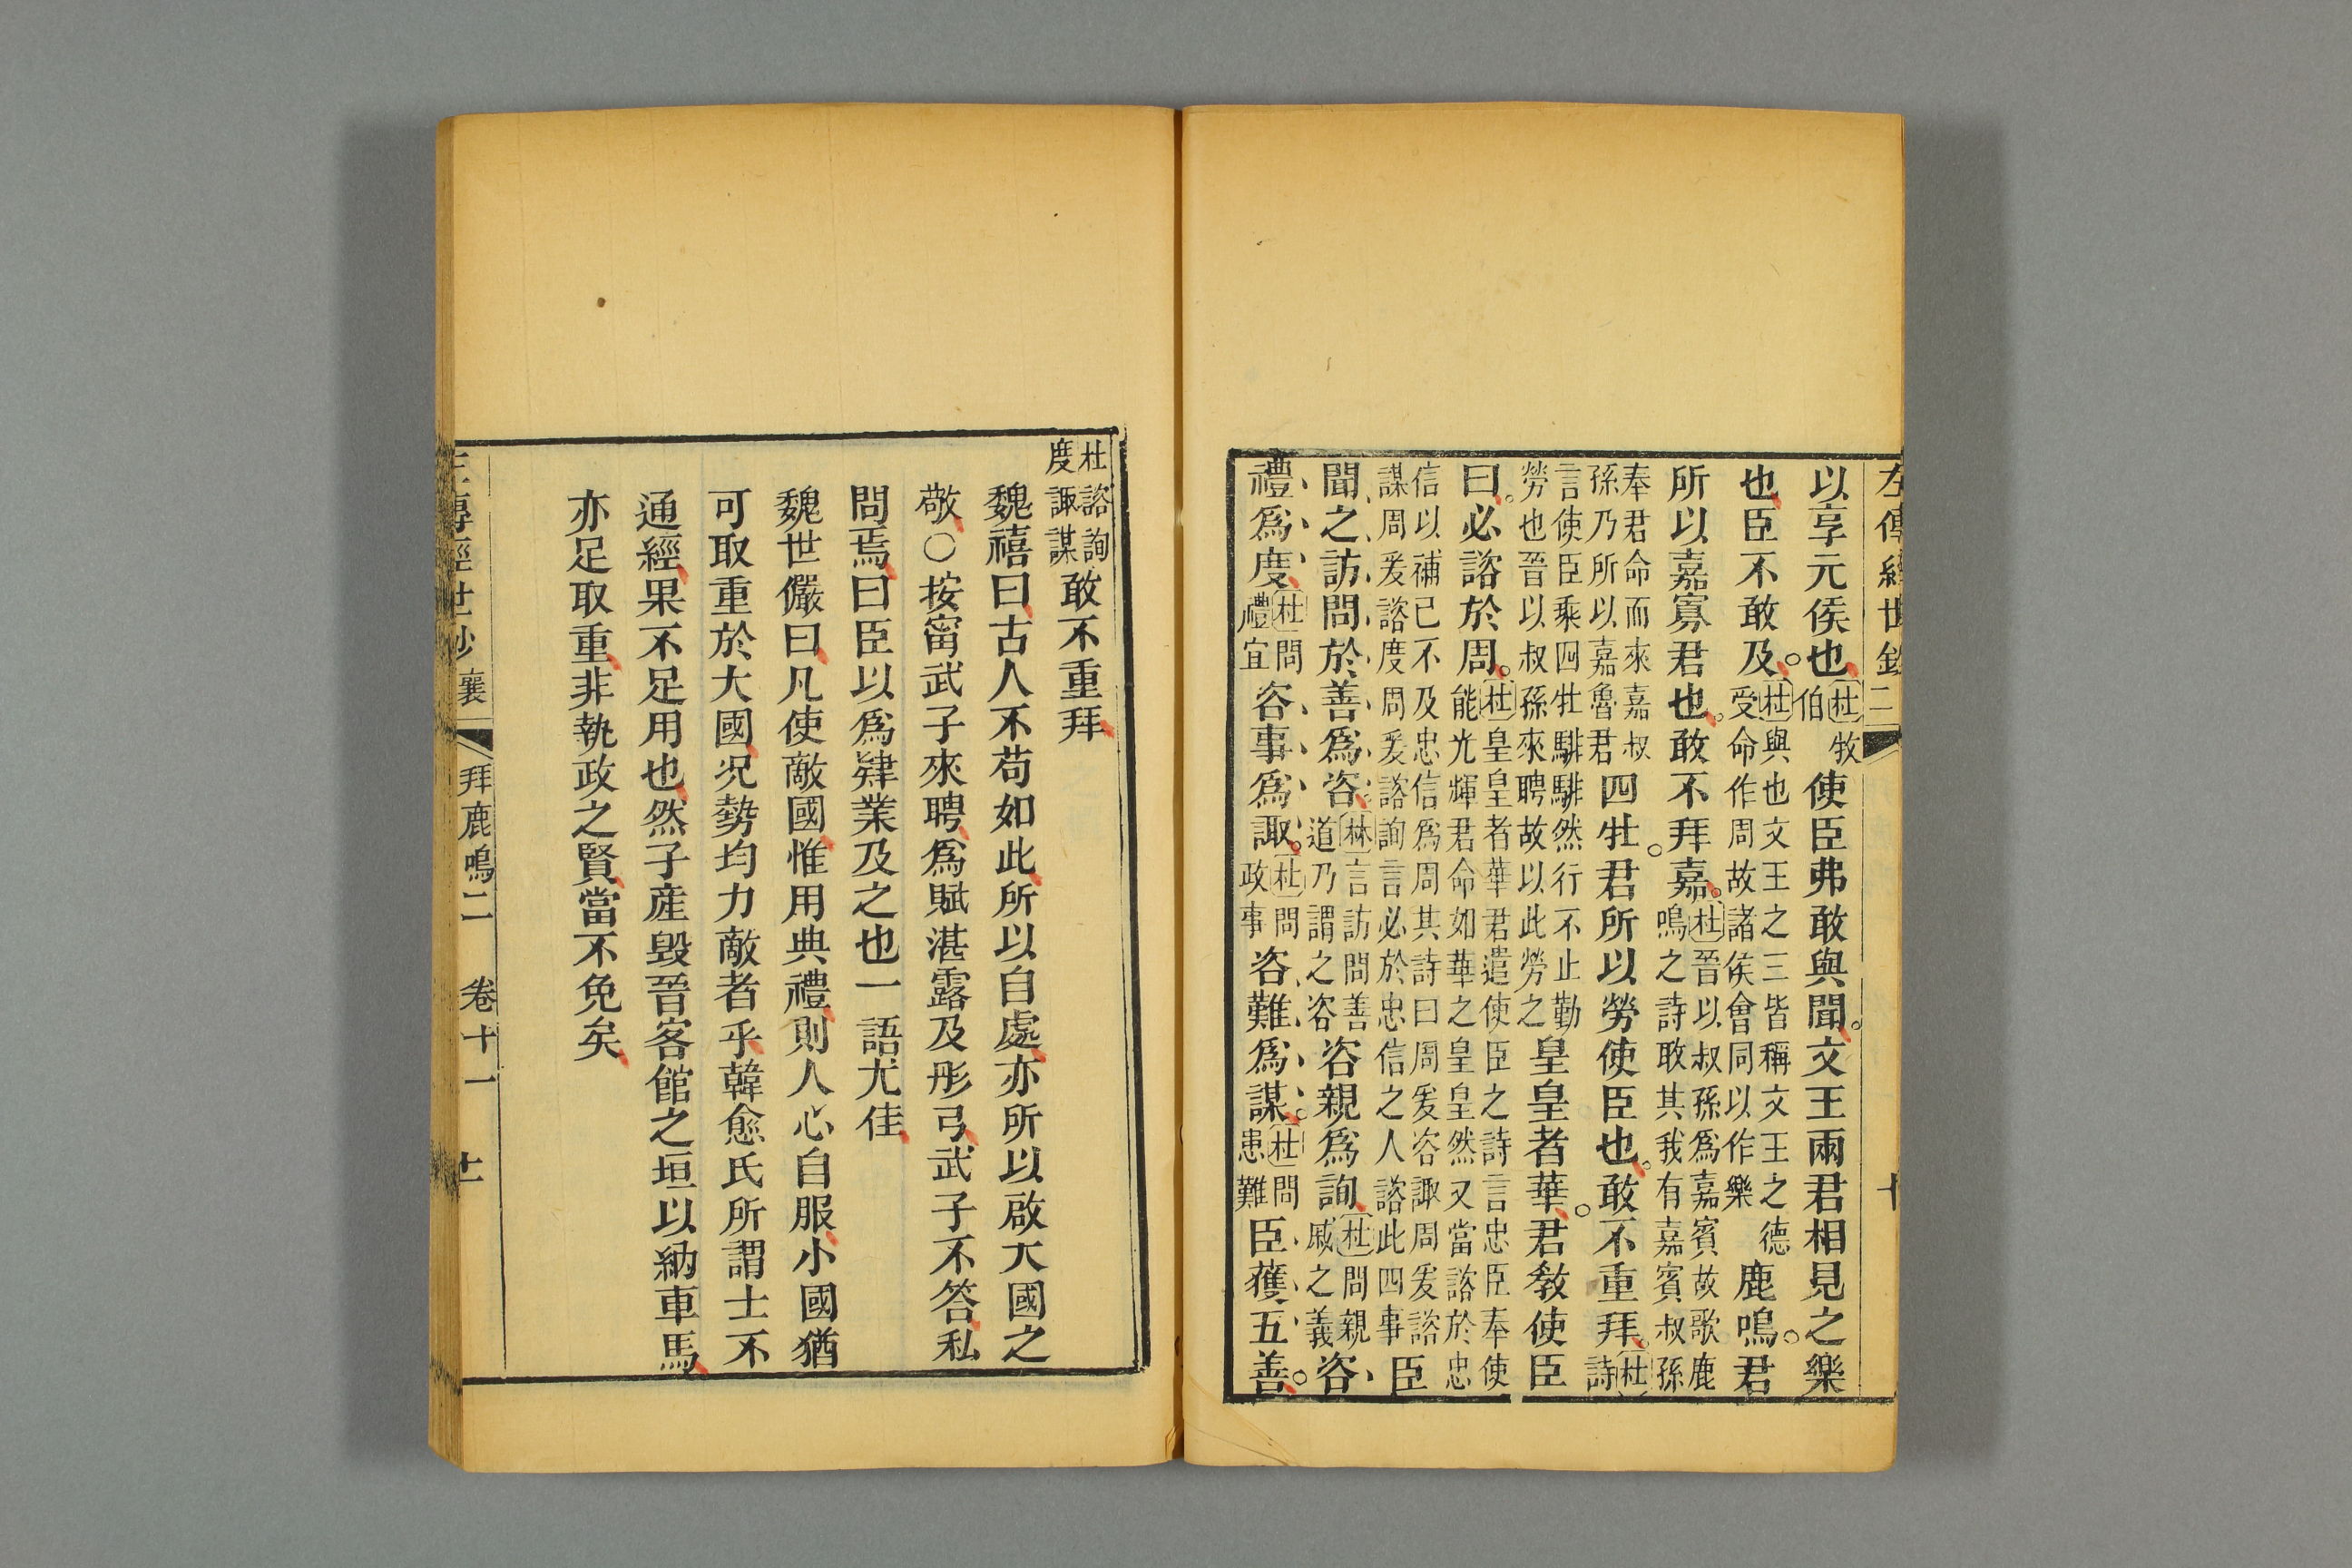 左傳經世鈔 二
以享元侯也杜牧伯使臣弗敢與聞。文王兩君相見之樂
也臣不敢及。杜與也文王之三皆稱文王之德受命作周故諸侯會同以作樂鹿鳴。君
所以嘉寡君也。敢不拜嘉。杜晉以叔孫爲嘉賓故歌鹿鳴之詩取其我有嘉賓叔孫
奉君命而來嘉叔孫乃所以嘉魯君四牡。君所以勞使臣也。敢不重拜。杜詩
言使臣乘四牡騑騑然行不止勤勞也晉以叔孫來聘故以此勞之皇皇者華。君敎使臣
曰。必諮於周。杜皇皇者華君遣使臣之詩言忠臣奉使能光輝君命如華之皇皇然又當諮於忠
信以補己不及忠信爲周其詩曰周爰咨諏周爰諮謀周爰諮度周爰諮詢言必於忠信之人諮此四事臣
聞之訪問於善爲咨。林言訪問善道乃謂之咨咨親爲詢。杜問親戚之義咨
禮爲度。杜問禮宜咨事爲諏。杜問政事咨難爲謀。杜問患難臣獲五善。
杜諮詢度諏謀敢不重拜
魏禧曰古人不苟如此所以自處亦所以啟大國之
敬○按甯武子來聘爲賦湛露及彤弓武子不答私
問焉曰臣以爲肄業及之也一語尤佳
魏世儼曰凡使敵國惟用典禮則人心自服小國猶
可取重於大國况勢均力敵者乎韓愈氏所謂士不
通經果不足用也然子産毀晉客館之垣以納車馬
亦足取重非執政之賢當不免矣
左傳經世鈔 襄 拜鹿鳴二 卷十一 十一